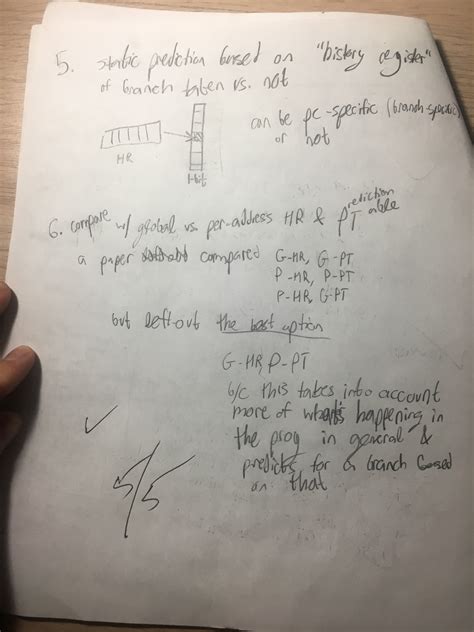 5. static prediction based on "history register"
of branch taken vs. not
can be pc-specific (branch-specific)
or not
HR
1-bit
6. compare w/ global vs. per-address HR & PT
rediction
able
a paper compared G-HR, G-PT
P-HR, P-PT
P-HR, G-PT
but left out the best option
G-HR, P-PT
b/c this takes into account
more of what's happening in
the prog in general &
predicts for a branch based
on that
5/5